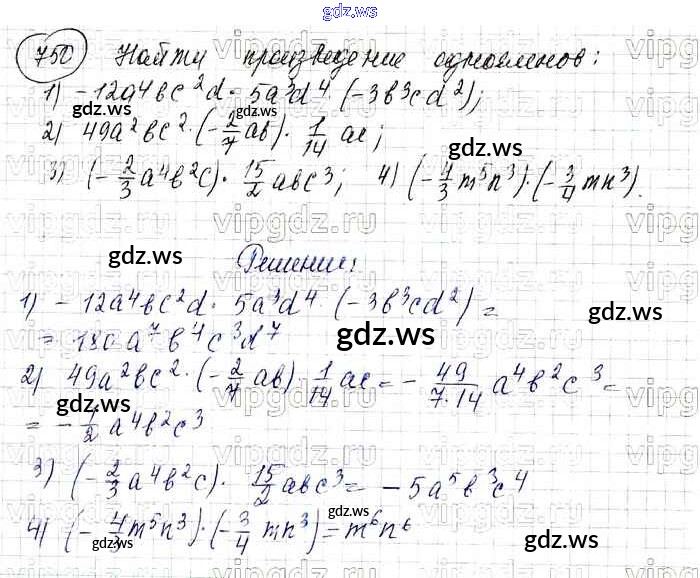 gdz.ws
750 Найти произведение одночленов:
1) -12a⁴bc²d · 5a³d⁴ · (-3b³cd²);
2) 49a²bc² · (-2/7 ab) · 1/14 ac;
3) (-2/3 a⁴b²c) · 15/2 abc³; 4) (-4/3 m⁵n³) · (-3/4 mn³).
Решение:
1) -12a⁴bc²d · 5a³d⁴ · (-3b³cd²) =
= 180a⁷b⁴c³d⁷
2) 49a²bc² · (-2/7 ab) · 1/14 ac = - 49/7·14 a⁴b²c³ =
= - 1/2 a⁴b²c³
3) (-2/3 a⁴b²c) · 15/2 abc³ = -5a⁵b³c⁴
4) (-4/3 m⁵n³) · (-3/4 mn³) = m⁶n⁶
gdz.ws
gdz.ws
gdz.ws
gdz.ws
gdz.ws
gdz.ws
gdz.ws
gdz.ws
gdz.ws
vipgdz.ru